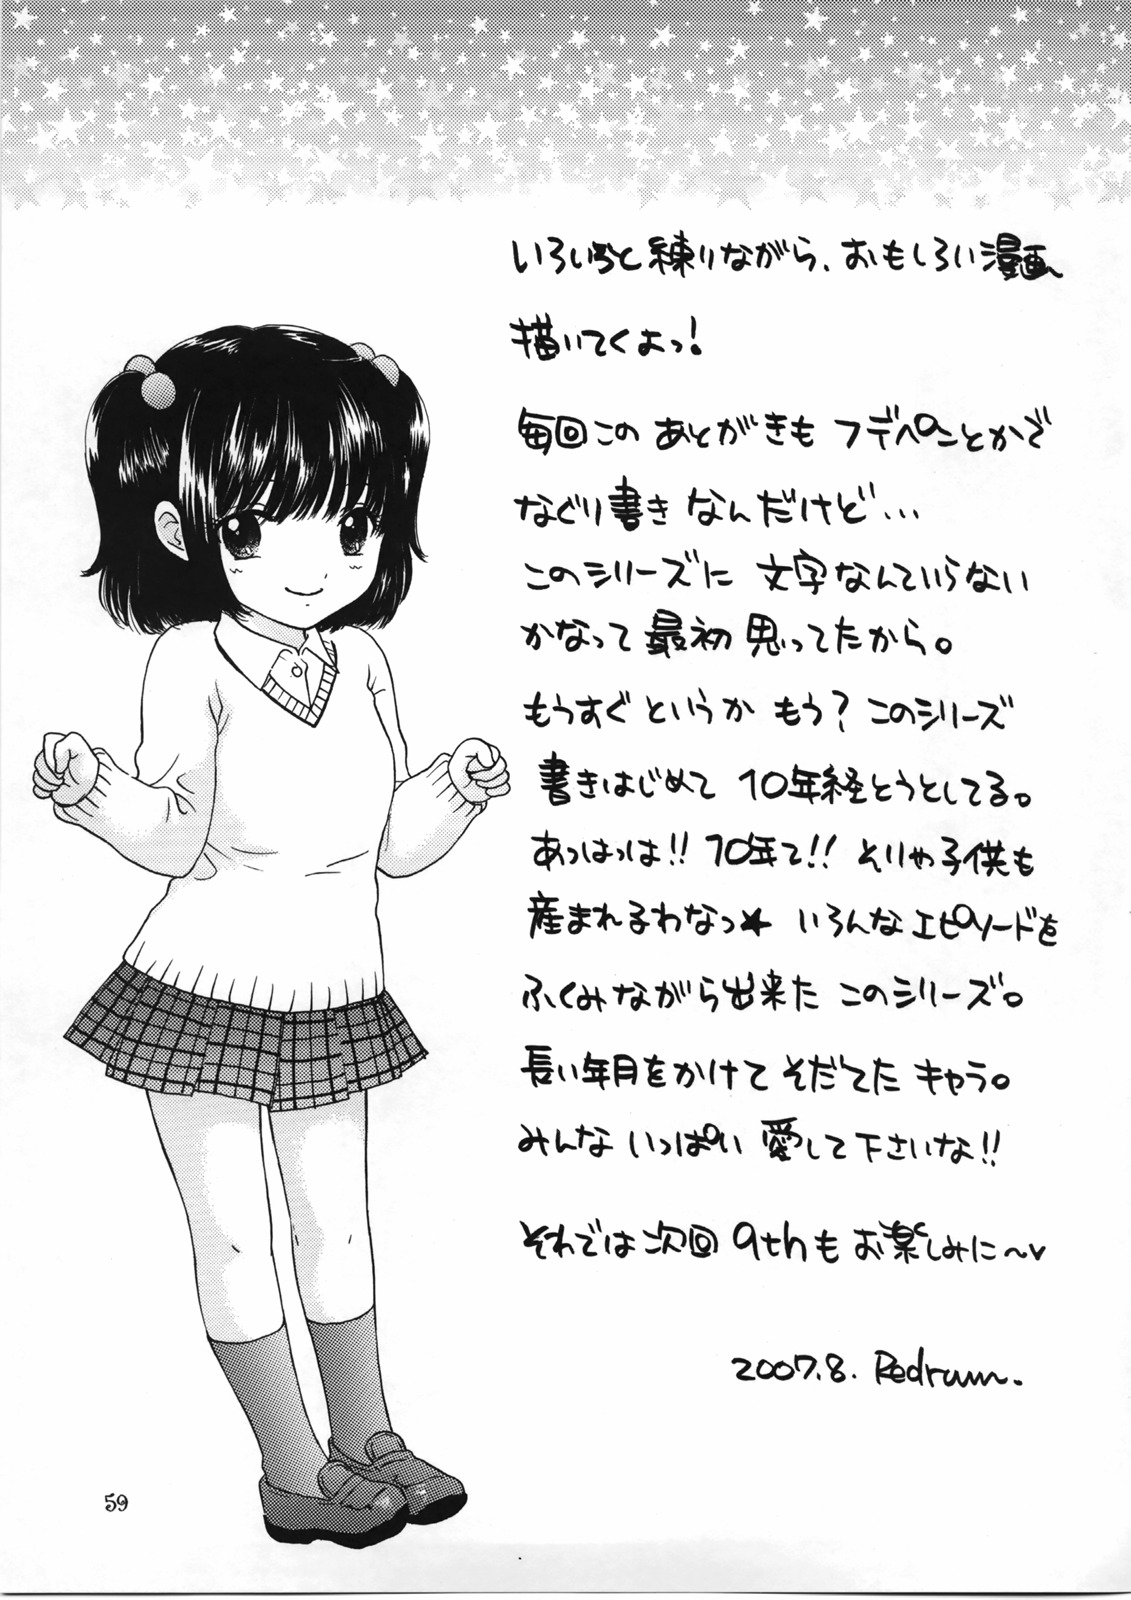 いろいろと練りながら、おもしろい漫画
描いてくよっ!
毎回このあとがきも フデペンとかで
なぐり書き なんだけど…
このシリーズに 文字なんていらない
かなって 最初 思ってたから。
もうすぐというか もう? このシリーズ
書きはじめて 10年経とうとしてる。
あっはっは!! 10年て!! そりゃ子供も
産まれるわなっ★ いろんなエピソードを
ふくみながら出来た このシリーズ。
長い年月をかけて そだてた キャラ。
みんな いっぱい 愛して下さいな!!
それでは次回 9thも お楽しみに～♥
2007.8. Redrum.
59